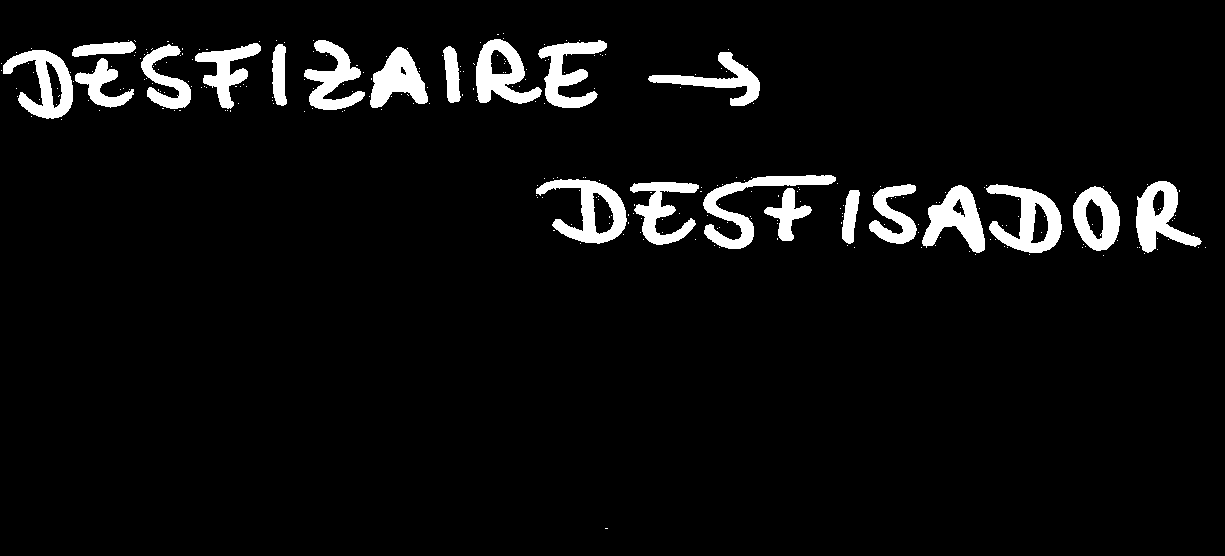 DESFIZAIRE →
DESFISADOR